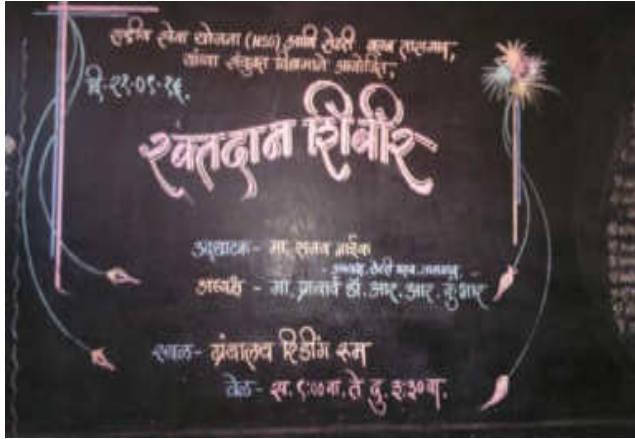 राष्ट्रीय सेवा योजना (NSS) आणि रोटरी क्लब तासगाव,
यांच्या संयुक्त विद्यमाने आयोजित,
दि-२२-०९-१६.
रक्तदान शिबीर
उद्घाटक- मा. समय नाईक
अध्यक्ष, रोटरी क्लब, तासगाव
अध्यक्ष - मा. प्राचार्य डॉ. आर. आर. कुंभार
स्थळ- ग्रंथालय रिडींग रूम
वेळ- स. ९:०० वा. ते दु. ३:३० वा.